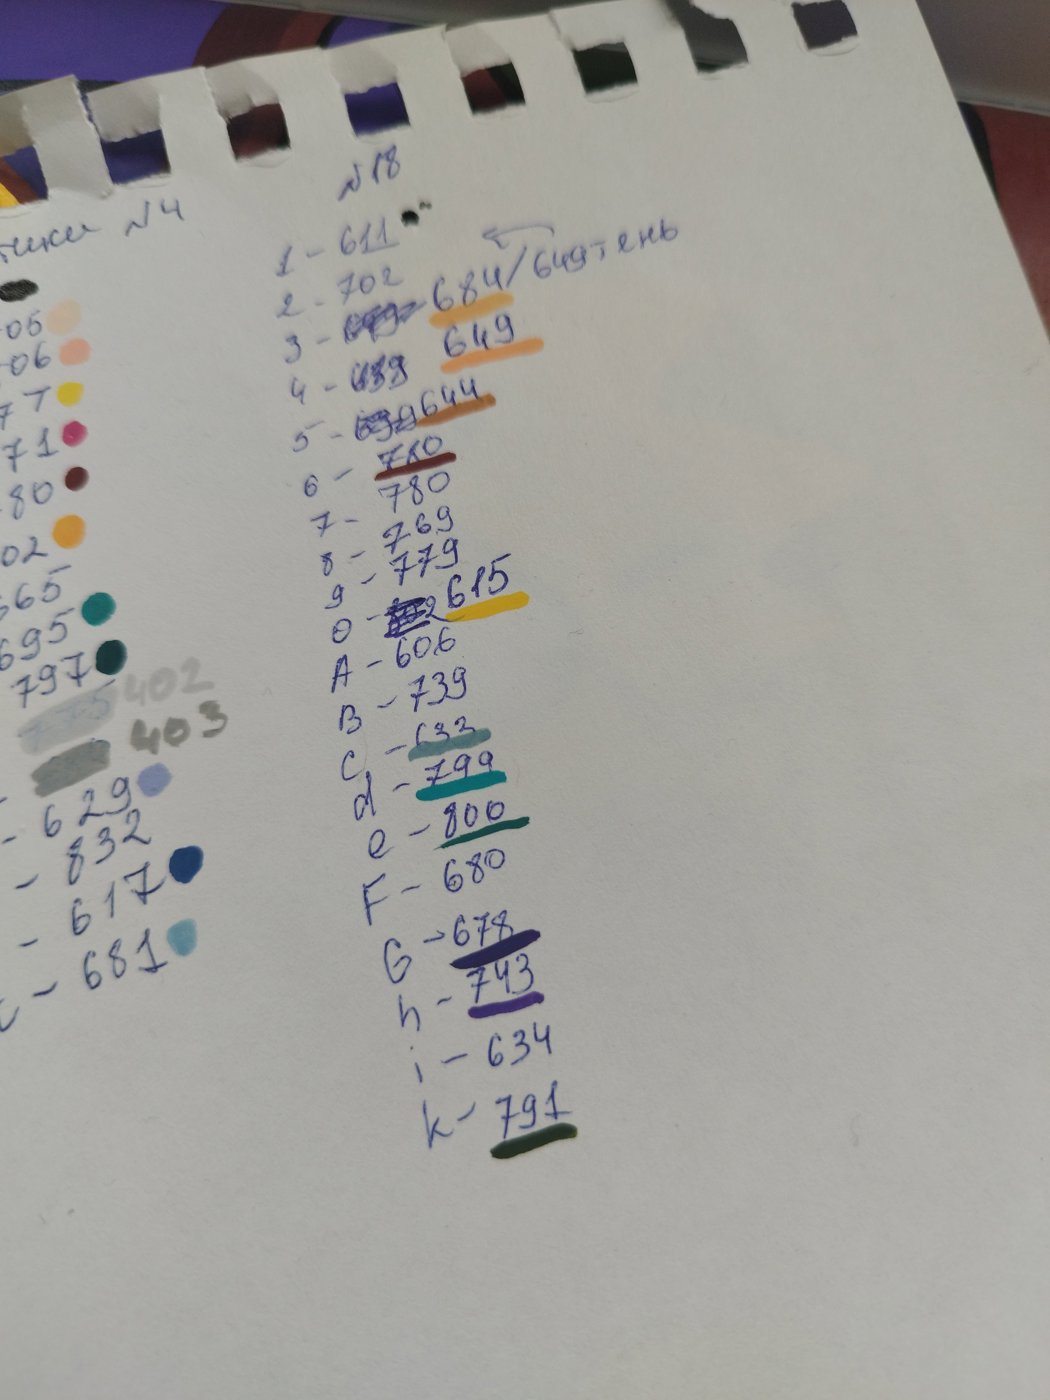 тики №4
05
06
7T
71
80
02
665
695
797
402
403
- 629
- 832
- 617
- 681
№18
1 - 611
2 - 702
3 - 684/649тень
4 - 649
5 - 644
6 - 780
7 - 780
8 - 769
9 - 779
0 - 615
A - 606
B - 739
C - 633
d - 799
e - 800
F - 680
G - 678
h - 743
i - 634
k - 791